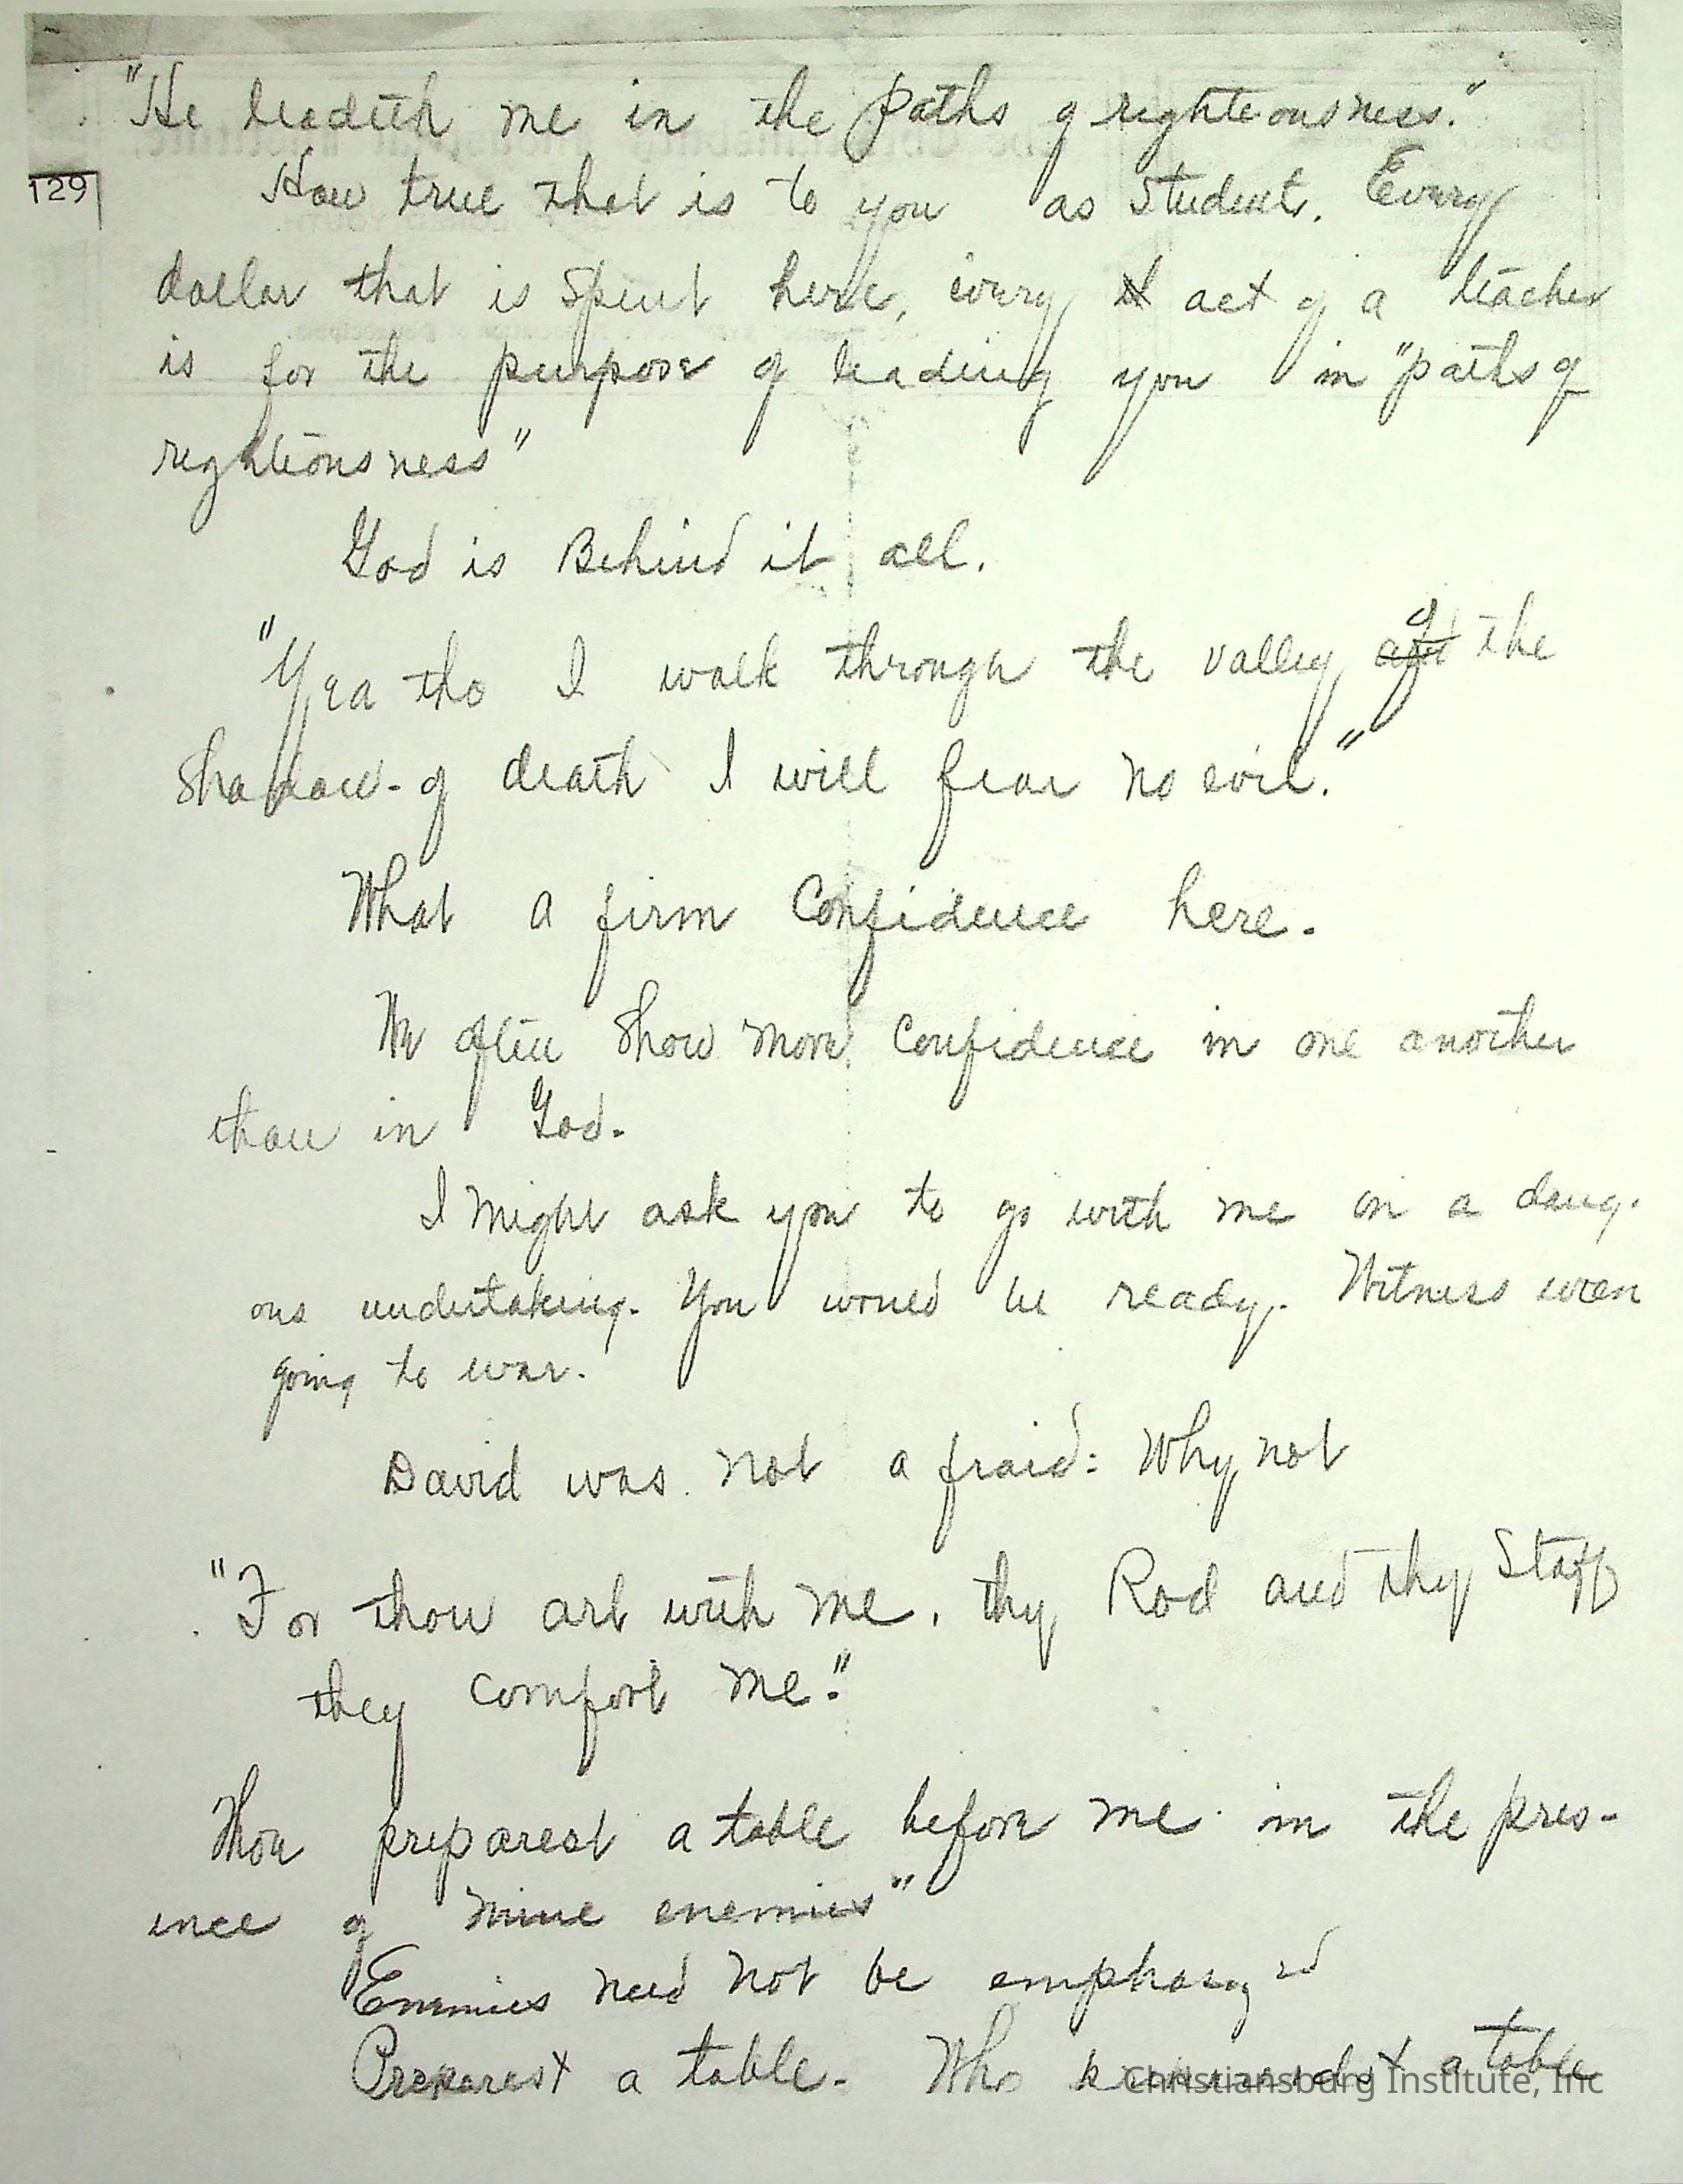 "He leadeth me in the paths of righteousness."
129
How true that is to you as student. Every
dollar that is spent here, every act of a teacher
is for the purpose of leading you in "paths of
righteousness"
God is Behind it all.
"Yea tho I walk through the valley of the
Shadow - of death I will fear no evil."
What a firm Confidence here.
We often show more Confidence in one another
than in God.
I might ask you to go with me on a dang.
ous undertaking. You would be ready. Witness
going to war.
David was not afraid: Why not
"For thou art with me, thy Rod and thy Staff
they comfort me."
Thou preparest a table before me in the pres-
ence of mine enemies"
Enemies need not be
Preparest a table - Who a table
Christiansburg Institute, Inc